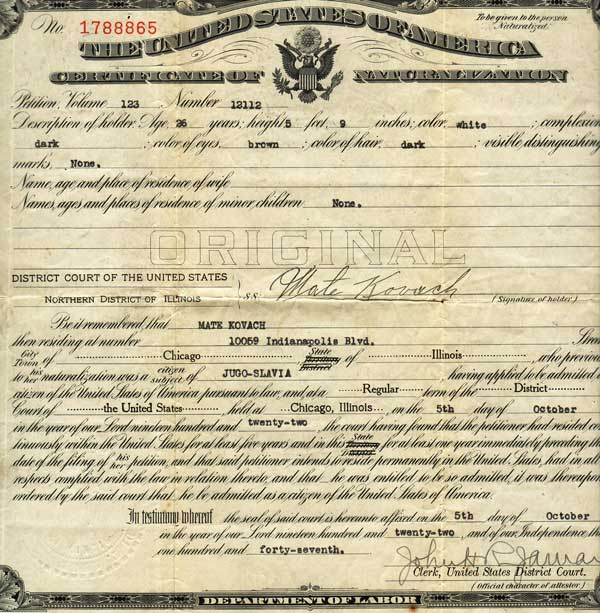 No. 1788865
To be given to the person Naturalized.
THE UNITED STATES OF AMERICA
CERTIFICATE OF NATURALIZATION
Petition, Volume 123 Number 12112
Description of holder. Age, 26 years; height, 5 feet, 9 inches; color, white; complexion,
dark; color of eyes, brown; color of hair, dark; visible distinguishing
marks, None.
Name, age and place of residence of wife
Names, ages and places of residence of minor children None.
ORIGINAL
DISTRICT COURT OF THE UNITED STATES
NORTHERN DISTRICT OF ILLINOIS } s.s: Mate Kovach
(Signature of holder)
Be it remembered, that MATE KOVACH
then residing at number 10059 Indianapolis Blvd. Stree
City Town of Chicago State District of Illinois, who previous
to his her naturalization was a citizen subject of JUGO-SLAVIA having applied to be admitted a
citizen of the United States of America pursuant to law, and, at a Regular term of the District
Court of the United States held at Chicago, Illinois, on the 5th day of October
in the year of our Lord nineteen hundred and twenty-two the court having found that the petitioner had resided con
tinuously within the United States for at least five years and in this State for at least one year immediately preceding the
date of the filing of his her petition, and that said petitioner intends to reside permanently in the United States, had in all
respects complied with the law in relation thereto, and that he was entitled to be so admitted, it was thereupon
ordered by the said court that he be admitted as a citizen of the United States of America.
In testimony whereof the seal of said court is hereunto affixed on the 5th day of October
in the year of our Lord nineteen hundred and twenty-two, and of our Independence the
one hundred and forty-seventh.
Clerk, United States District Court.
(Official character of attestor.)
DEPARTMENT OF LABOR